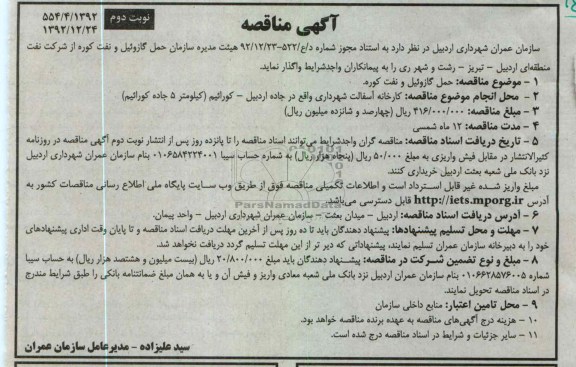 آگهی مناقصه
نوبت دوم
۵۵۴/۴/۱۳۹۲
۱۳۹۲/۱۲/۲۴
سازمان عمران شهرداری اردبیل در نظر دارد به استناد مجوز شماره د/ع/۵۲۲-۹۲/۱۲/۲۳ هیئت مدیره سازمان حمل گازوئیل و نفت کوره از شرکت نفت
منطقه‌ای اردبیل - تبریز - رشت و شهر ری را به پیمانکاران واجدشرایط واگذار نماید.
۱ - موضوع مناقصه: حمل گازوئیل و نفت کوره.
۲ - محل انجام موضوع مناقصه: کارخانه آسفالت شهرداری واقع در جاده اردبیل - کورائیم (کیلومتر ۵ جاده کورائیم)
۳ - مبلغ مناقصه: ۴۱۶/۰۰۰/۰۰۰ ریال (چهارصد و شانزده میلیون ریال)
۴ - مدت مناقصه: ۱۲ ماه شمسی
۵ - تاریخ دریافت اسناد مناقصه: مناقصه گران واجدشرایط می توانند اسناد مناقصه را تا پانزده روز پس از انتشار نوبت دوم آگهی مناقصه در روزنامه
کثیرالانتشار در مقابل فیش واریزی به مبلغ ۵۰/۰۰۰ ریال (پنجاه هزار ریال) به شماره حساب سیبا ۰۱۰۶۵۸۴۲۲۴۰۰۱ بنام سازمان عمران شهرداری اردبیل
نزد بانک ملی شعبه بعثت اردبیل خریداری کنند.
مبلغ واریز شده غیر قابل استرداد است و اطلاعات تکمیلی مناقصه فوق از طریق وب سایت پایگاه ملی اطلاع رسانی مناقصات کشور به
آدرس http://iets.mporg.ir قابل دسترسی می‌باشد.
۶ - آدرس دریافت اسناد مناقصه: اردبیل - میدان بعثت - سازمان عمران شهرداری اردبیل - واحد پیمان.
۷ - مهلت و محل تسلیم پیشنهادها: پیشنهاد دهندگان باید تا ده روز پس از آخرین مهلت دریافت اسناد مناقصه و تا پایان وقت اداری پیشنهادهای
خود را به دبیرخانه سازمان عمران تسلیم نمایند، پیشنهاداتی که دیر تر از این مهلت تسلیم گردد دریافت نخواهد شد.
۸ - مبلغ و نوع تضمین شرکت در مناقصه: پیشنهاد دهندگان باید مبلغ ۲۰/۸۰۰/۰۰۰ ریال (بیست میلیون و هشتصد هزار ریال) به حساب سیبا
شماره ۰۱۰۶۶۲۸۵۷۶۰۰۵ بنام سازمان عمران اردبیل نزد بانک ملی شعبه معادی واریز و فیش آن و یا به همان مبلغ ضمانتنامه بانکی را طبق شرایط مندرج
در اسناد مناقصه تحویل نمایند.
۹ - محل تامین اعتبار: منابع داخلی سازمان
۱۰ - هزینه درج آگهی‌های مناقصه به عهده برنده مناقصه خواهد بود.
۱۱ - سایر جزئیات و شرایط در اسناد مناقصه درج شده است.
سید علیزاده - مدیرعامل سازمان عمران
ParsNamadData